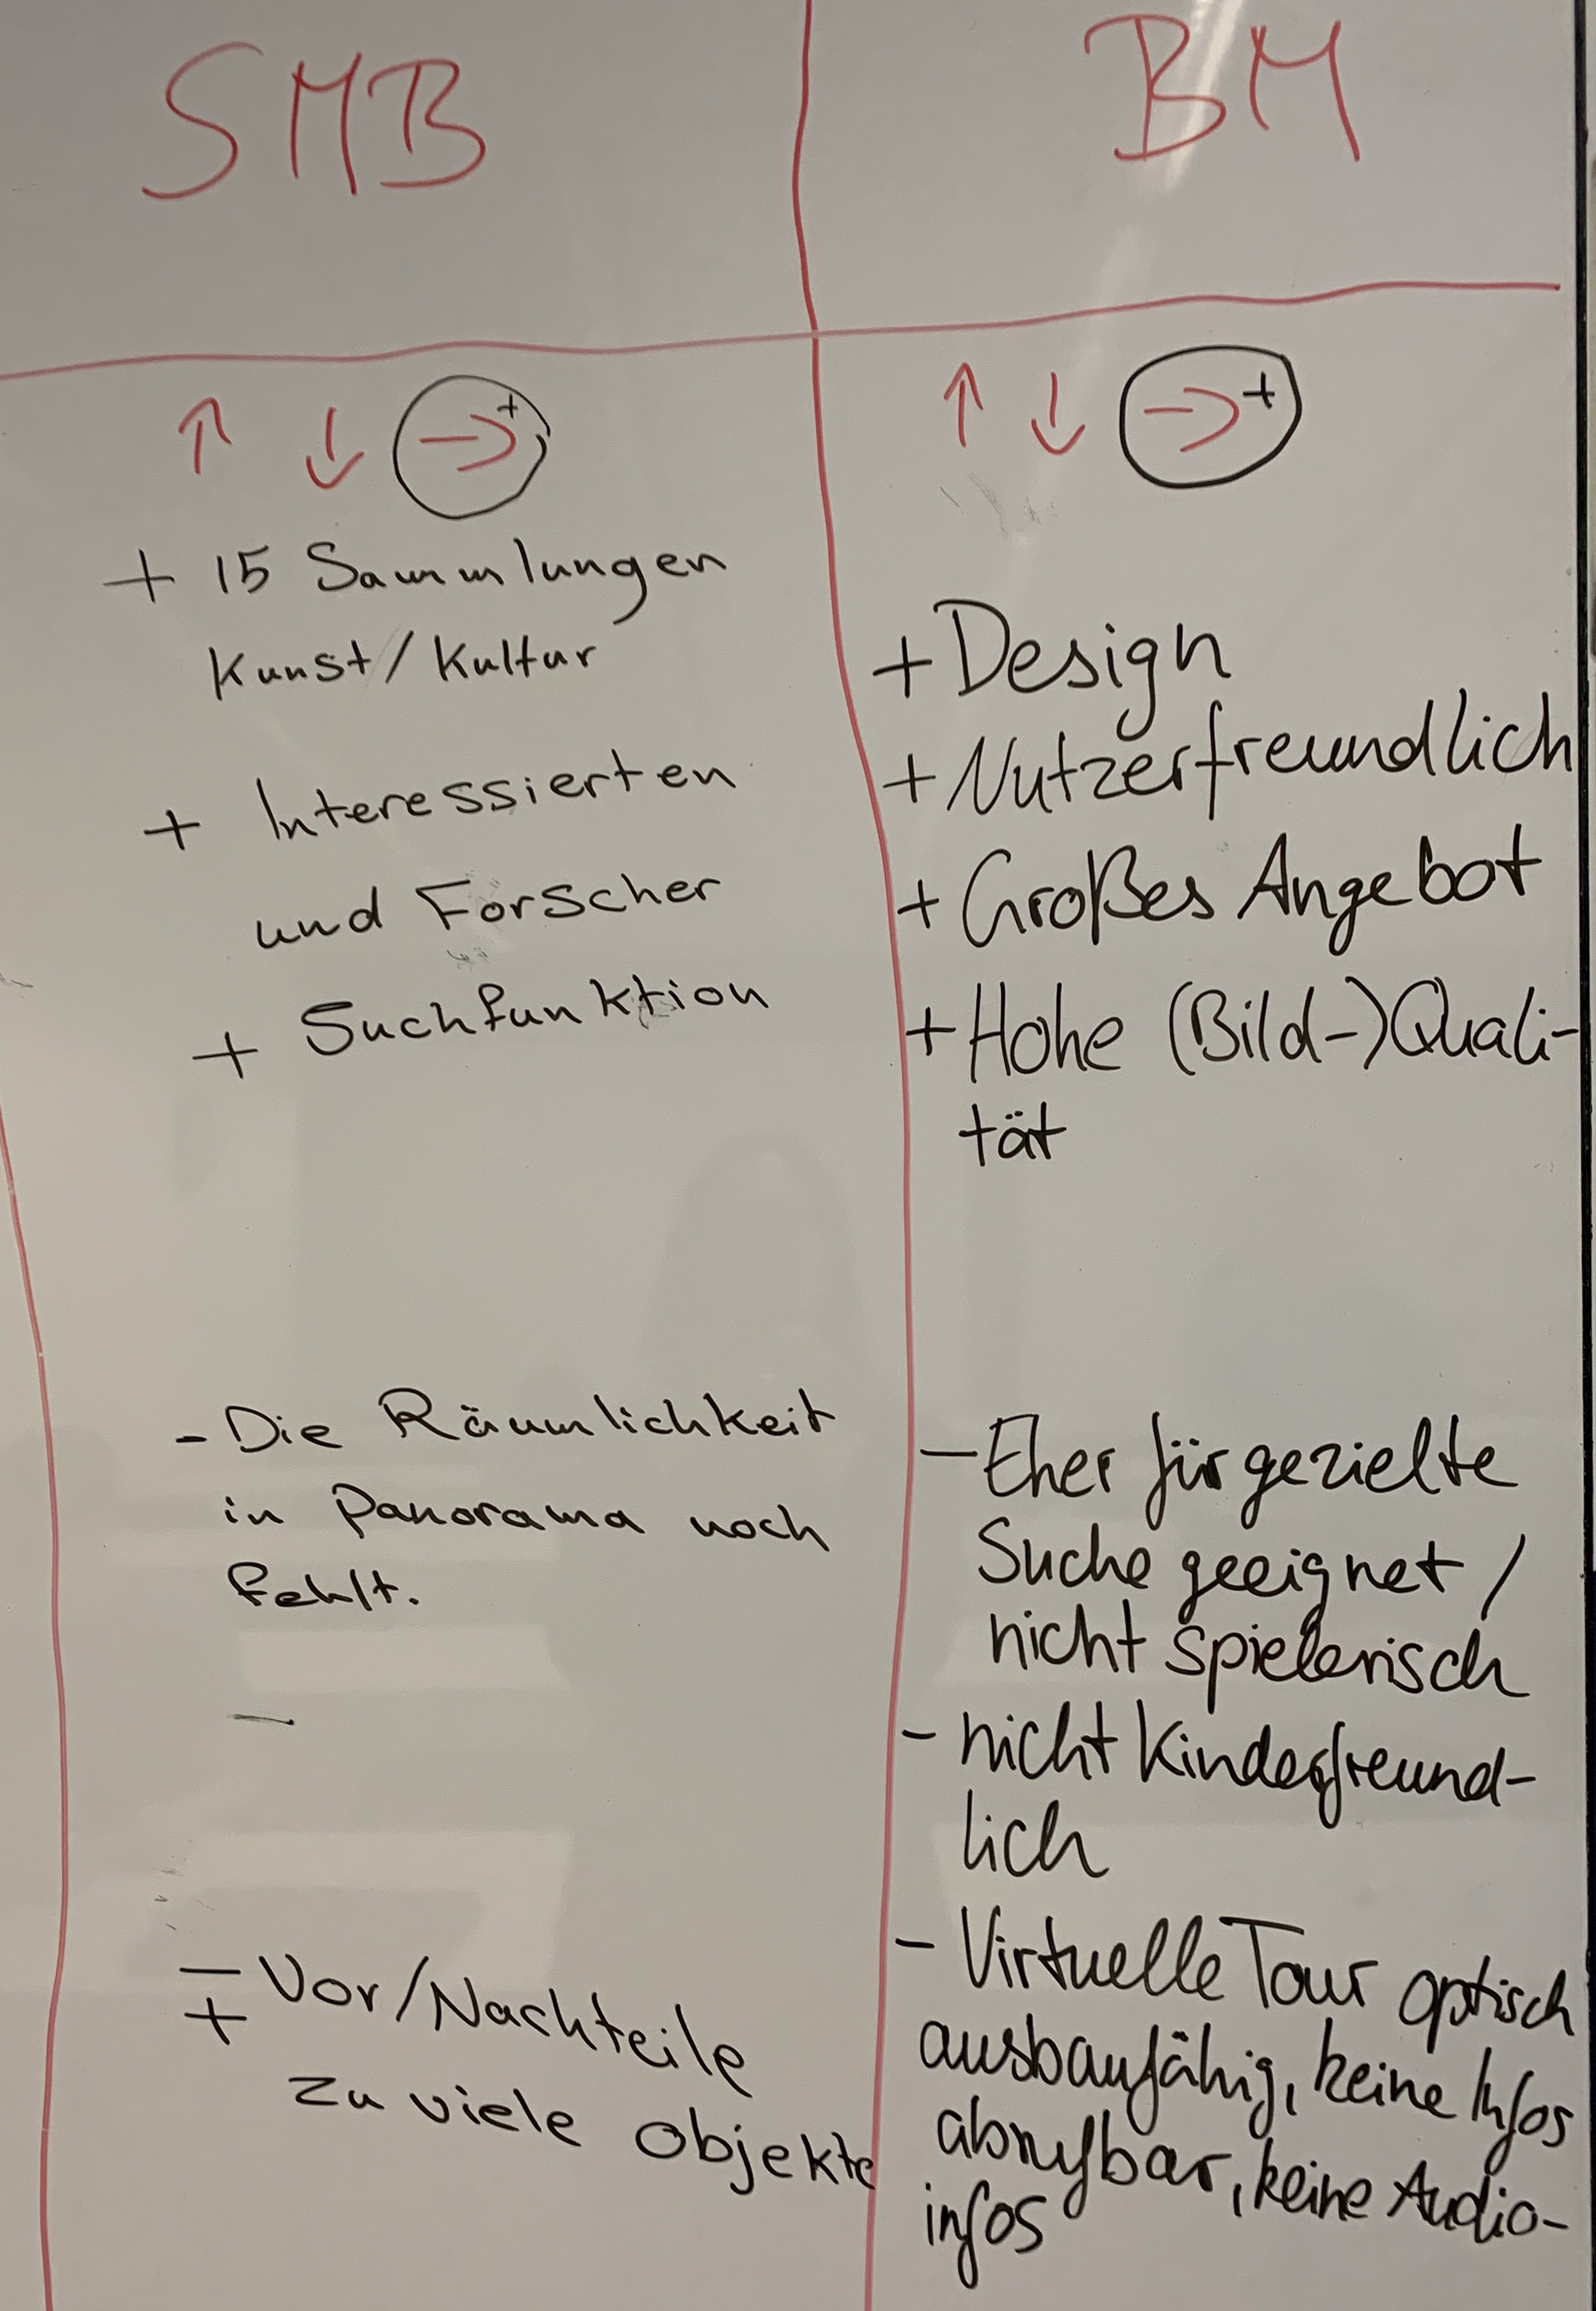 SMB
↑ ↓ →+
+ 15 Sammlungen
Kunst/Kultur
+ Interessierten
und Forscher
+ Suchfunktion
- Die Räumlichkeit
in Panorama noch
fehlt.
-
-
+ Vor/Nachteile
zu viele Objekte
BM
↑ ↓ →+
+ Design
+ Nutzerfreundlich
+ Großes Angebot
+ Hohe (Bild-)Quali-
tät
- Eher für gezielte
Suche geeignet /
nicht spielerisch
- nicht kinderfreund-
lich
- Virtuelle Tour optisch
ausbaufähig, keine Infos
abrufbar, keine Audio-
infos